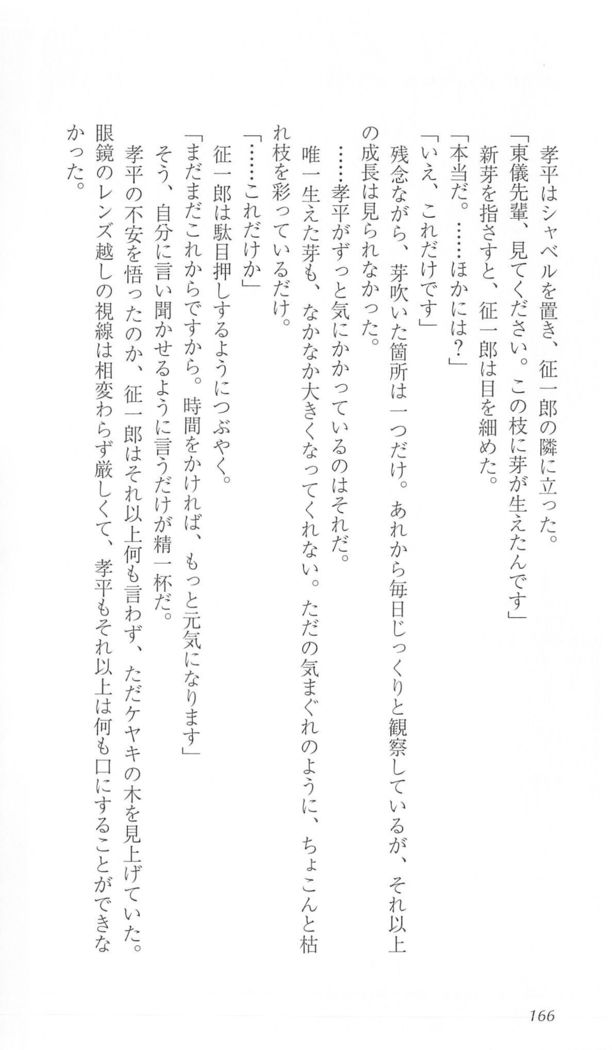 孝平はシャベルを置き、征一郎の隣に立った。
「東儀先輩、見てください。この枝に芽が生えたんです」
新芽を指さすと、征一郎は目を細めた。
「本当だ。……ほかには？」
「いえ、これだけです」
残念ながら、芽吹いた箇所は一つだけ。あれから毎日じっくりと観察しているが、それ以上
の成長は見られなかった。
……孝平がずっと気にかかっているのはそれだ。
唯一生えた芽も、なかなか大きくなってくれない。ただの気まぐれのように、ちょこんと枯
れ枝を彩っているだけ。
「……これだけか」
征一郎は駄目押しするようにつぶやく。
「まだまだこれからですから。時間をかければ、もっと元気になります」
そう、自分に言い聞かせるように言うだけが精一杯だ。
孝平の不安を悟ったのか、征一郎はそれ以上何も言わず、ただケヤキの木を見上げていた。
眼鏡のレンズ越しの視線は相変わらず厳しくて、孝平もそれ以上は何も口にすることができな
かった。
166